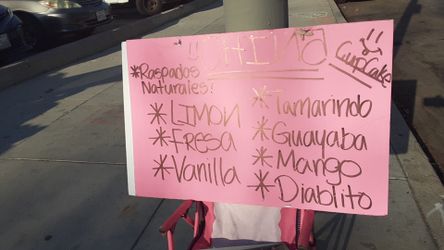 CHINA
CupCake
*Raspados
Naturales!
*LIMON
*Fresa
*Vanilla
*Tamarindo
*Guayaba
*Mango
*Diablito